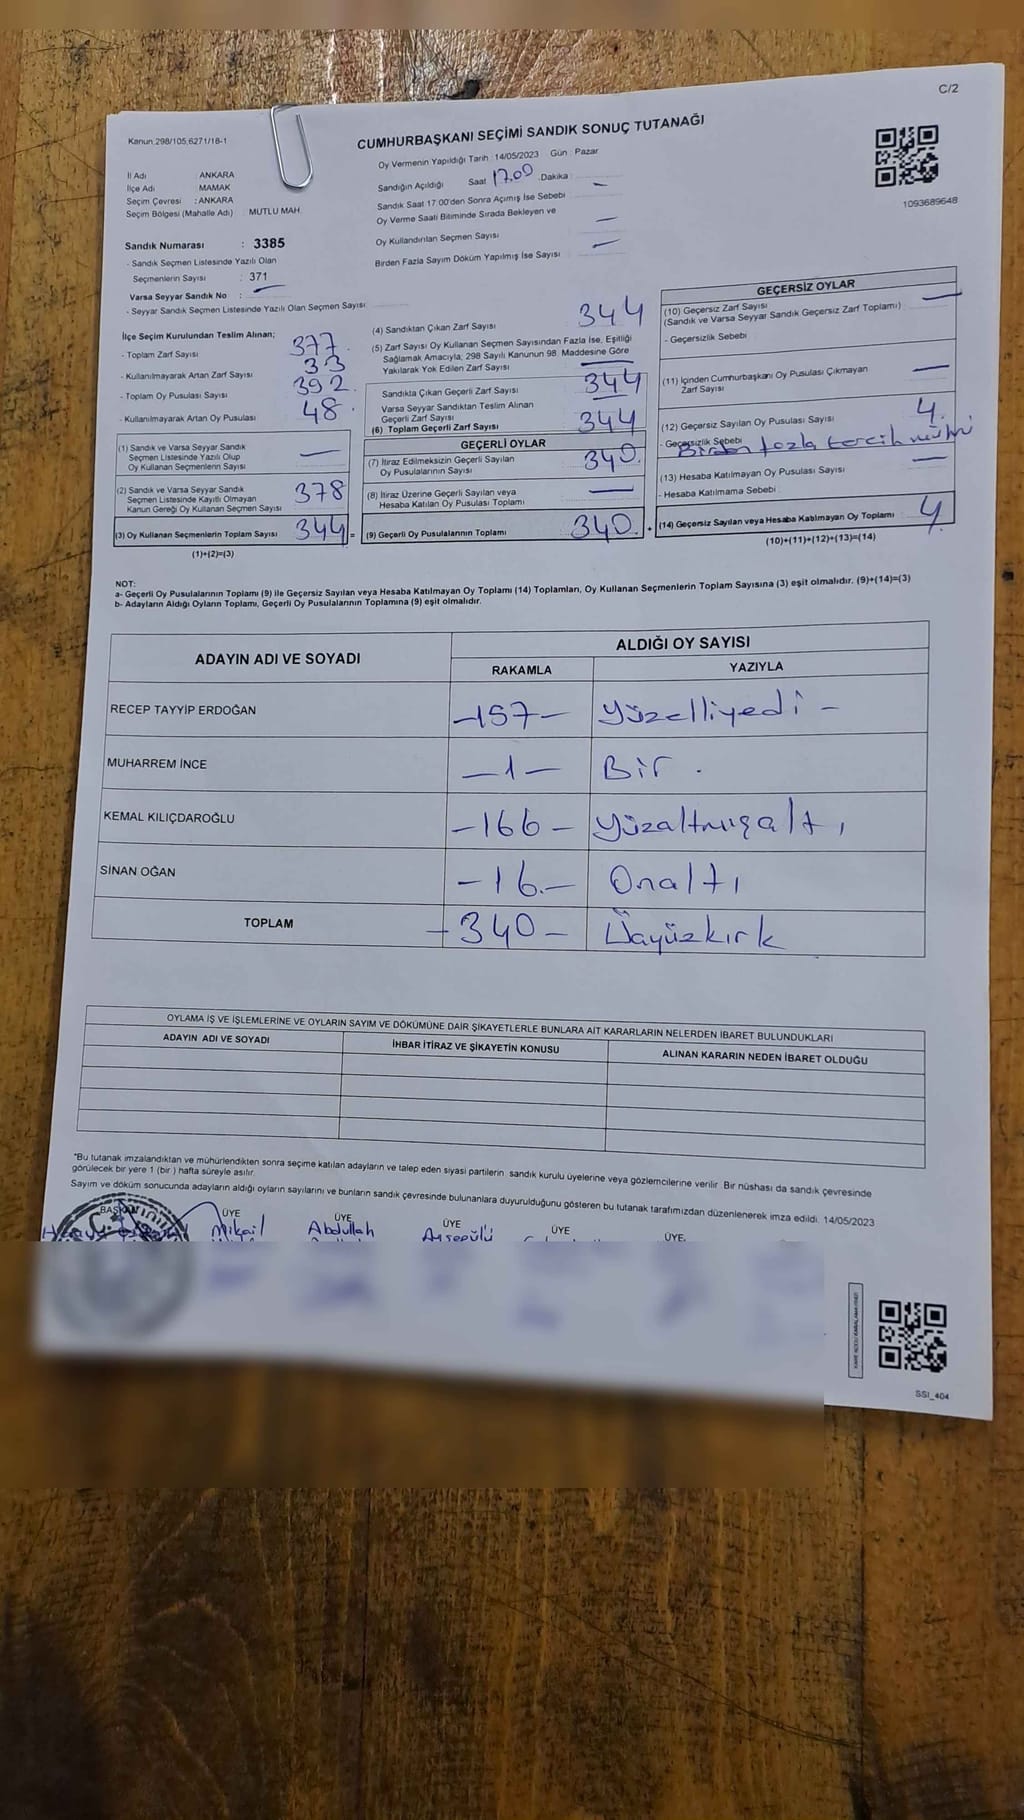 C/2
Kanun.298/105,6271/18-1
CUMHURBAŞKANI SEÇİMİ SANDIK SONUÇ TUTANAĞI
Oy Vermenin Yapıldığı Tarih : 14/05/2023 Gün : Pazar
İl Adı ANKARA
İlçe Adı MAMAK
Seçim Çevresi : ANKARA
Seçim Bölgesi (Mahalle Adı) : MUTLU MAH.
Sandığın Açıldığı Saat 17.00 .Dakika :
Sandık Saat 17:00'den Sonra Açımış İse Sebebi —
Oy Verme Saati Bitiminde Sırada Bekleyen ve
Oy Kullandırılan Seçmen Sayısı —
Birden Fazla Sayım Döküm Yapılmış İse Sayısı —
1093689648
Sandık Numarası : 3385
- Sandık Seçmen Listesinde Yazılı Olan
Seçmenlerin Sayısı : 371
Varsa Seyyar Sandık No : —
- Seyyar Seçmen Listesinde Yazılı Olan Seçmen Sayısı
İlçe Seçim Kurulundan Teslim Alınan;
- Toplam Zarf Sayısı 377
- Kullanılmayarak Artan Zarf Sayısı 33
- Toplam Oy Pusulası Sayısı 392.
- Kullanılmayarak Artan Oy Pusulası 48.
(1) Sandık ve Varsa Seyyar Sandık
Seçmen Listesinde Yazılı Olup
Oy Kullanan Seçmenlerin Sayısı —
(2) Sandık ve Varsa Seyyar Sandık
Seçmen Listesinde Kayıtlı Olmayan
Kanun Gereği Oy Kullanan Seçmen Sayısı 378
(3) Oy Kullanan Seçmenlerin Toplam Sayısı 344 =
(1)+(2)=(3)
(4) Sandıktan Çıkan Zarf Sayısı 344
(5) Zarf Sayısı Oy Kullanan Seçmen Sayısından Fazla İse, Eşitliği
Sağlamak Amacıyla, 298 Sayılı Kanunun 98. Maddesine Göre
Yakılarak Yok Edilen Zarf Sayısı —
Sandıkta Çıkan Geçerli Zarf Sayısı 344
Varsa Seyyar Sandıktan Teslim Alınan
Geçerli Zarf Sayısı —
(6) Toplam Geçerli Zarf Sayısı 344
GEÇERLİ OYLAR
(7) İtiraz Edilmeksizin Geçerli Sayılan
Oy Pusulalarının Sayısı 340.
(8) İtiraz Üzerine Geçerli Sayılan veya
Hesaba Katılan Oy Pusulası Toplamı —
(9) Geçerli Oy Pusulalarının Toplamı 340. +
GEÇERSİZ OYLAR
(10) Geçersiz Zarf Sayısı —
(Sandık ve Varsa Seyyar Sandık Geçersiz Zarf Toplamı)
- Geçersizlik Sebebi
(11) İçinden Cumhurbaşkanı Oy Pusulası Çıkmayan
Zarf Sayısı —
(12) Geçersiz Sayılan Oy Pusulası Sayısı 4.
- Geçersizlik Sebebi Birden fazla tercih mührü
(13) Hesaba Katılmayan Oy Pusulası Sayısı —
- Hesaba Katılmama Sebebi
(14) Geçersiz Sayılan veya Hesaba Katılmayan Oy Toplamı 4
(10)+(11)+(12)+(13)=(14)
NOT:
a- Geçerli Oy Pusulalarının Toplamı (9) ile Geçersiz Sayılan veya Hesaba Katılmayan Oy Toplamı (14) Toplamları, Oy Kullanan Seçmenlerin Toplam Sayısına (3) eşit olmalıdır. (9)+(14)=(3)
b- Adayların Aldığı Oyların Toplamı, Geçerli Oy Pusulalarının Toplamına (9) eşit olmalıdır.
ADAYIN ADI VE SOYADI ALDIĞI OY SAYISI
RAKAMLA YAZIYLA
RECEP TAYYİP ERDOĞAN —157— Yüzelliyedi —
MUHARREM İNCE —1— Bir .
KEMAL KILIÇDAROĞLU —166— Yüzaltmışaltı
SİNAN OĞAN —16.— Onaltı
TOPLAM —340— Üçyüzkırk
OYLAMA İŞ VE İŞLEMLERİNE VE OYLARIN SAYIM VE DÖKÜMÜNE DAİR ŞİKAYETLERLE BUNLARA AİT KARARLARIN NELERDEN İBARET BULUNDUKLARI
ADAYIN ADI VE SOYADI İHBAR İTİRAZ VE ŞİKAYETİN KONUSU ALINAN KARARIN NEDEN İBARET OLDUĞU
*Bu tutanak imzalandıktan ve mühürlendikten sonra seçime katılan adayların ve talep eden siyasi partilerin sandık kurulu üyelerine veya gözlemcilerine verilir. Bir nüshası da sandık çevresinde
görülecek bir yere 1 (bir ) hafta süreyle asılır.
Sayım ve döküm sonucunda adayların aldığı oyların sayılarını ve bunların sandık çevresinde bulunanlara duyurulduğunu gösteren bu tutanak tarafımızdan düzenlenerek imza edildi. 14/05/2023
BAŞKAN ÜYE ÜYE ÜYE ÜYE ÜYE
Mikail Abdullah Ayşegülü
SSI_404